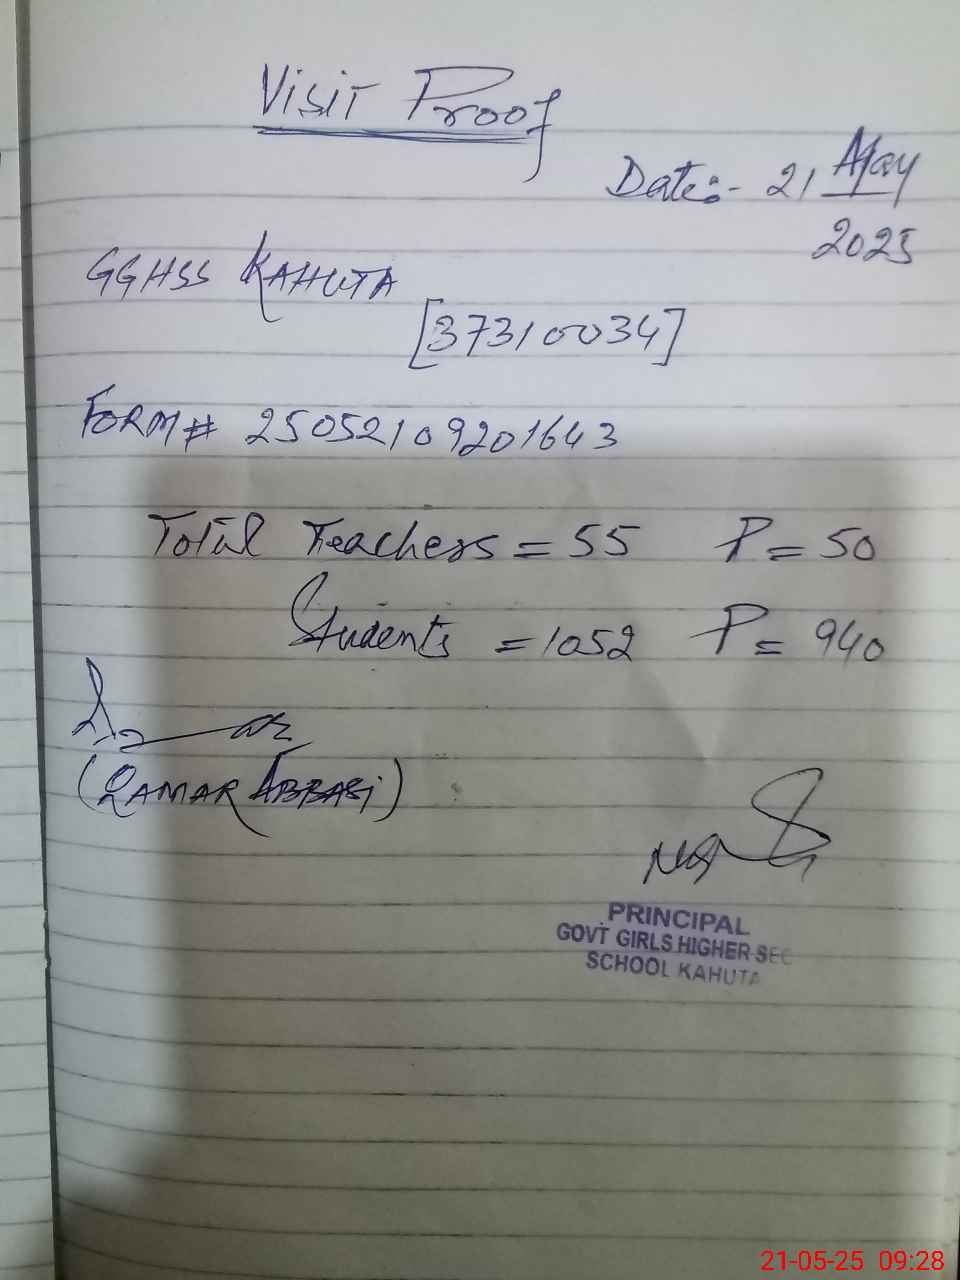 Visit Proof
Date:- 21 May
2025
GGHSS KAHUTA
[37310034]
FORM# 25052109201643
Total Teachers = 55 P = 50
Students = 1052 P = 940
(QAMAR ABBASI)
PRINCIPAL
GOVT GIRLS HIGHER SEC
SCHOOL KAHUTA
21-05-25 09:28